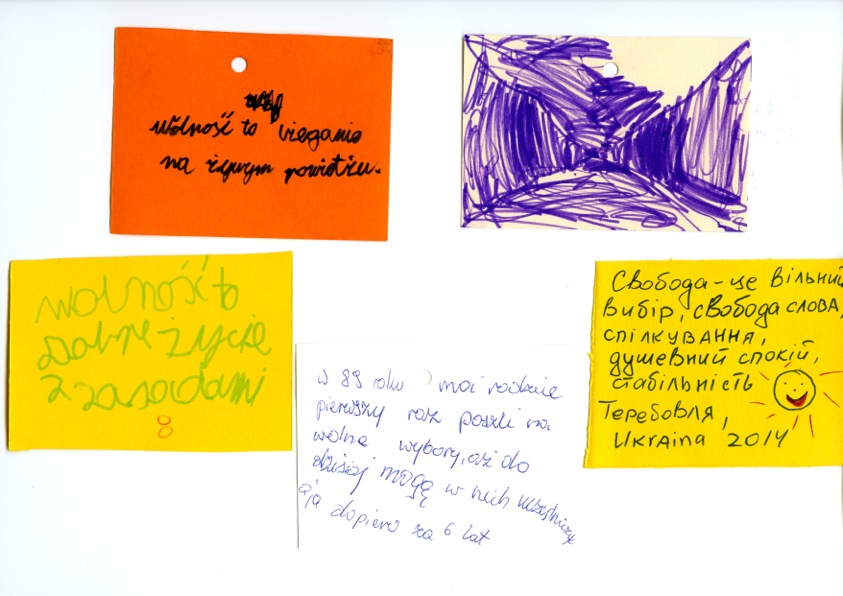 Wolność to bieganie
na żywym powietrzu.
Wolność to
Dobre życie
z zasadami
8
w 89 roku moi rodzice
pierwszy raz poszli na
wolne wybory, aż do
dzisiaj mogą w nich uczestniczyć
a ja dopiero za 6 lat
Свобода - це вільний
вибір, свобода слова,
спілкування,
душевний спокій,
стабільність
Теребовля,
Ukraina 2014